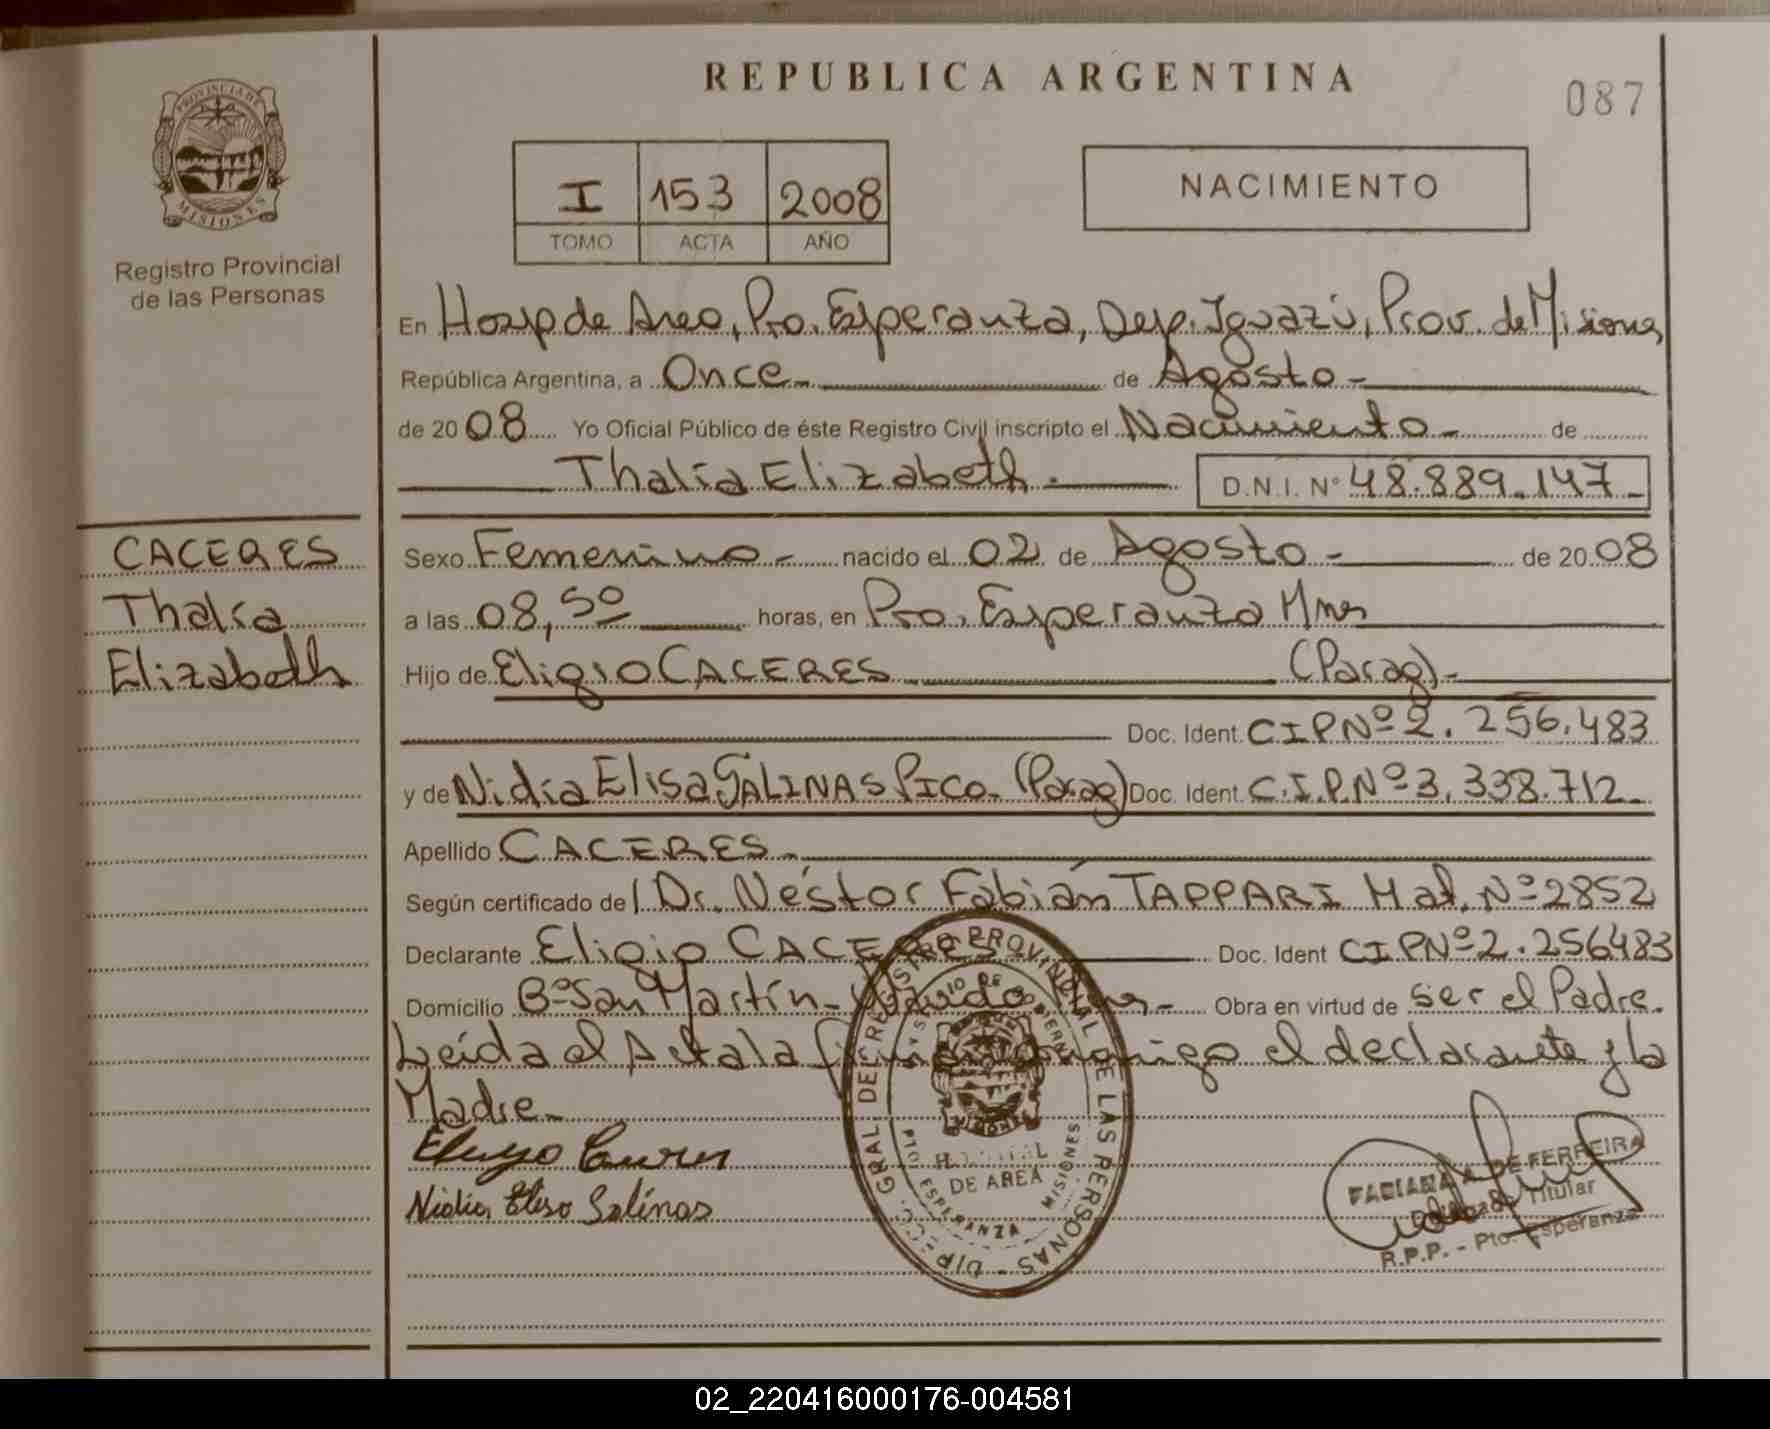 REPUBLICA ARGENTINA
087
PROVINCIA DE MISIONES
Registro Provincial
de las Personas
I 153 2008
TOMO ACTA AÑO
NACIMIENTO
En Hosp de Area, Pto. Esperanza, Dep. Iguazú, Prov. de Misiones
República Argentina, a Once de Agosto
de 2008 Yo Oficial Público de éste Registro Civil inscripto el Nacimiento de
Thalía Elizabeth. D.N.I. N° 48.889.147
CACERES
Thalía
Elizabeth
Sexo Femenino nacido el 02 de Agosto de 2008
a las 08,50 horas, en Pto. Esperanza Mnes
Hijo de Eligio CACERES (Parag)
Doc. Ident. CIPNº 2.256.483
y de Nidia Elisa SALINAS PICO (Parag) Doc. Ident. C.I.P.Nº 3.338.712
Apellido CACERES
Según certificado de Dr. Néstor Fabián TAPPARI Mat. Nº 2852
Declarante Eligio CACERES Doc. Ident CIPNº 2.256483
Domicilio Bº San Martín - Obra en virtud de ser el Padre.
Leída el Acta la conmigo el declarante y la
Madre
Nidia Elisa Salinas
DIR. GRAL. DEL REGISTRO PROVINCIAL DE LAS PERSONAS
HOSPITAL
DE AREA
PTO. ESPERANZA - MISIONES
FABIANA A. DE FERREIRA
Delegada Titular
R.P.P. - Pto. Esperanza
02_220416000176-004581